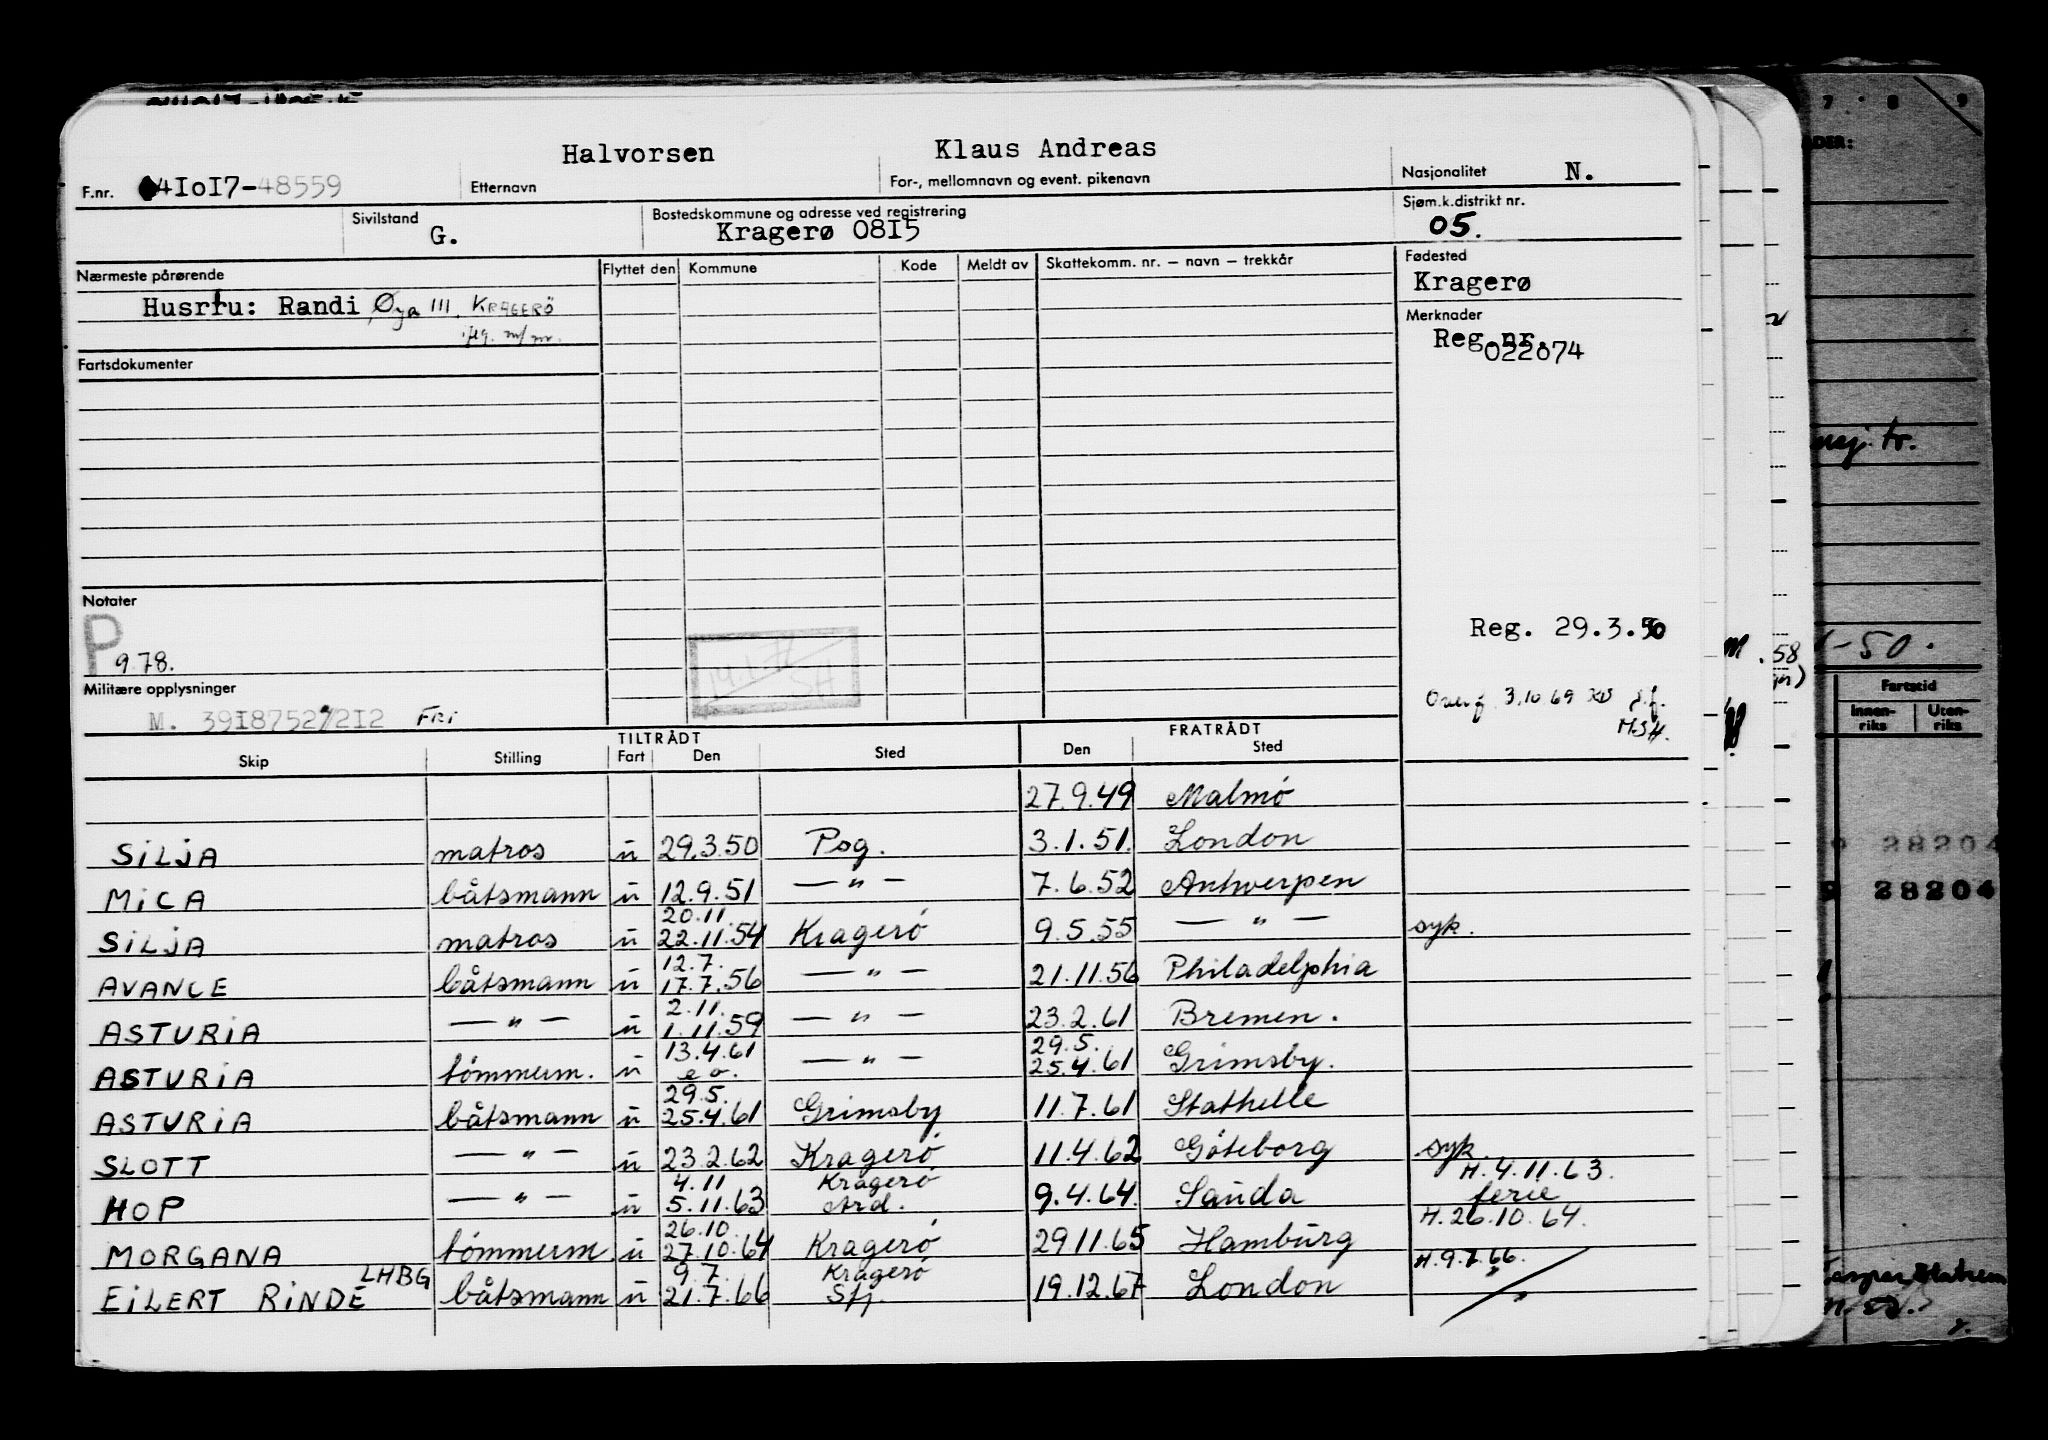 Halvorsen Klaus Andreas
F.nr. 41o17-48559 Etternavn For-, mellomnavn og event. pikenavn Nasjonalitet N.
Sivilstand G. Bostedskommune og adresse ved registrering Kragerø 0815 Sjøm.k.distrikt nr. 05.
Nærmeste pårørende Flyttet den Kommune Kode Meldt av Skattekomm. nr. – navn – trekkår Fødested
Kragerø
Husrfu: Randi Øya 111, KRAGERÖ
Merknader
Reg.nr.
022874
Fartsdokumenter
Notater
P
9.78.
Reg. 29.3.50
Militære opplysninger
M. 39187529/212 FRI
Overf 3.10.69
M.S.H.
TILTRÅDT FRATRÅDT
Skip Stilling Fart Den Sted Den Sted
27.9.49 Malmö
SILJA matros u 29.3.50 Psg. 3.1.51. London
MICA båtsmann u 12.9.51 — " — 7.6.52 Antwerpen
20.11.
SILJA matros u 22.11.54 Kragerö 9.5.55 — " — syk.
12.7.
AVANCE båtsmann u 17.7.56 — " — 21.11.56 Philadelphia
2.11.
ASTURIA — " — u 1.11.59 — " — 23.2.61 Bremen.
13.4.61 29.5.
ASTURIA tömmerm. u e.o. — " — 25.4.61 Grimsby.
29.5.
ASTURIA båtsmann u 25.4.61 Grimsby 11.7.61 Stathelle
SLOTT — " — u 23.2.62 Kragerö 11.4.62 Göteborg syk.
4.11 Kragerö H.4.11.63.
HOP — " — u 5.11.63 Ard. 9.4.64. Sauda ferie
26.10. H.26.10.64.
MORGANA tömmerm. u 27.10.64 Kragerö 29.11.65 Hamburg
LHBG 9.7. Kragerö H.9.7.66.
EILERT RINDE båtsmann u 21.7.66 Sfj. 19.12.67 London
7 8 9
-50.
58
Fartstid
Innenriks Utenriks
28204
28204